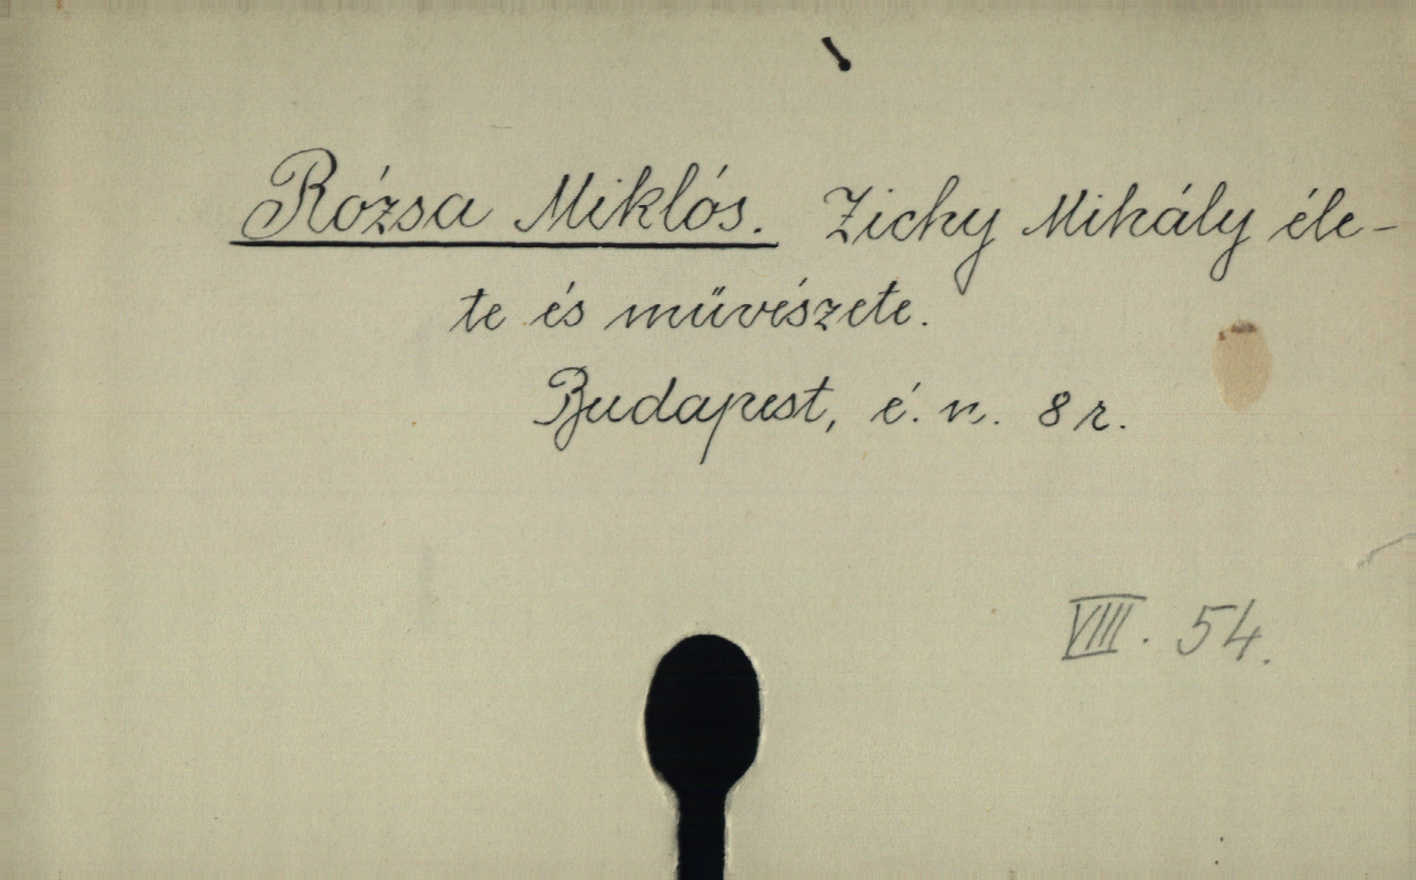 Rózsa Miklós. Zichy Mihály éle-
te és művészete.
Budapest, é. n. 8 r.
VIII. 54.